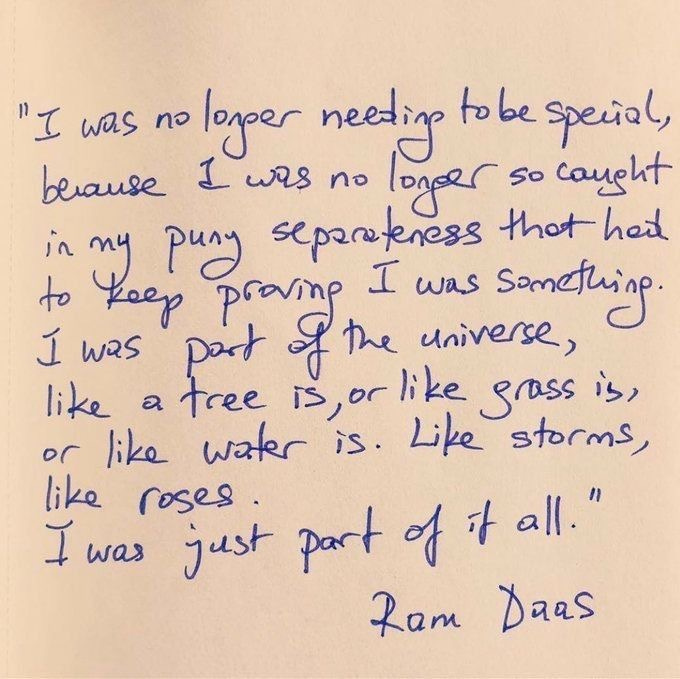 "I was no longer needing to be special,
because I was no longer so caught
in my puny separateness that had
to keep proving I was something.
I was part of the universe,
like a tree is, or like grass is,
or like water is. Like storms,
like roses.
I was just part of it all."
Ram Daas